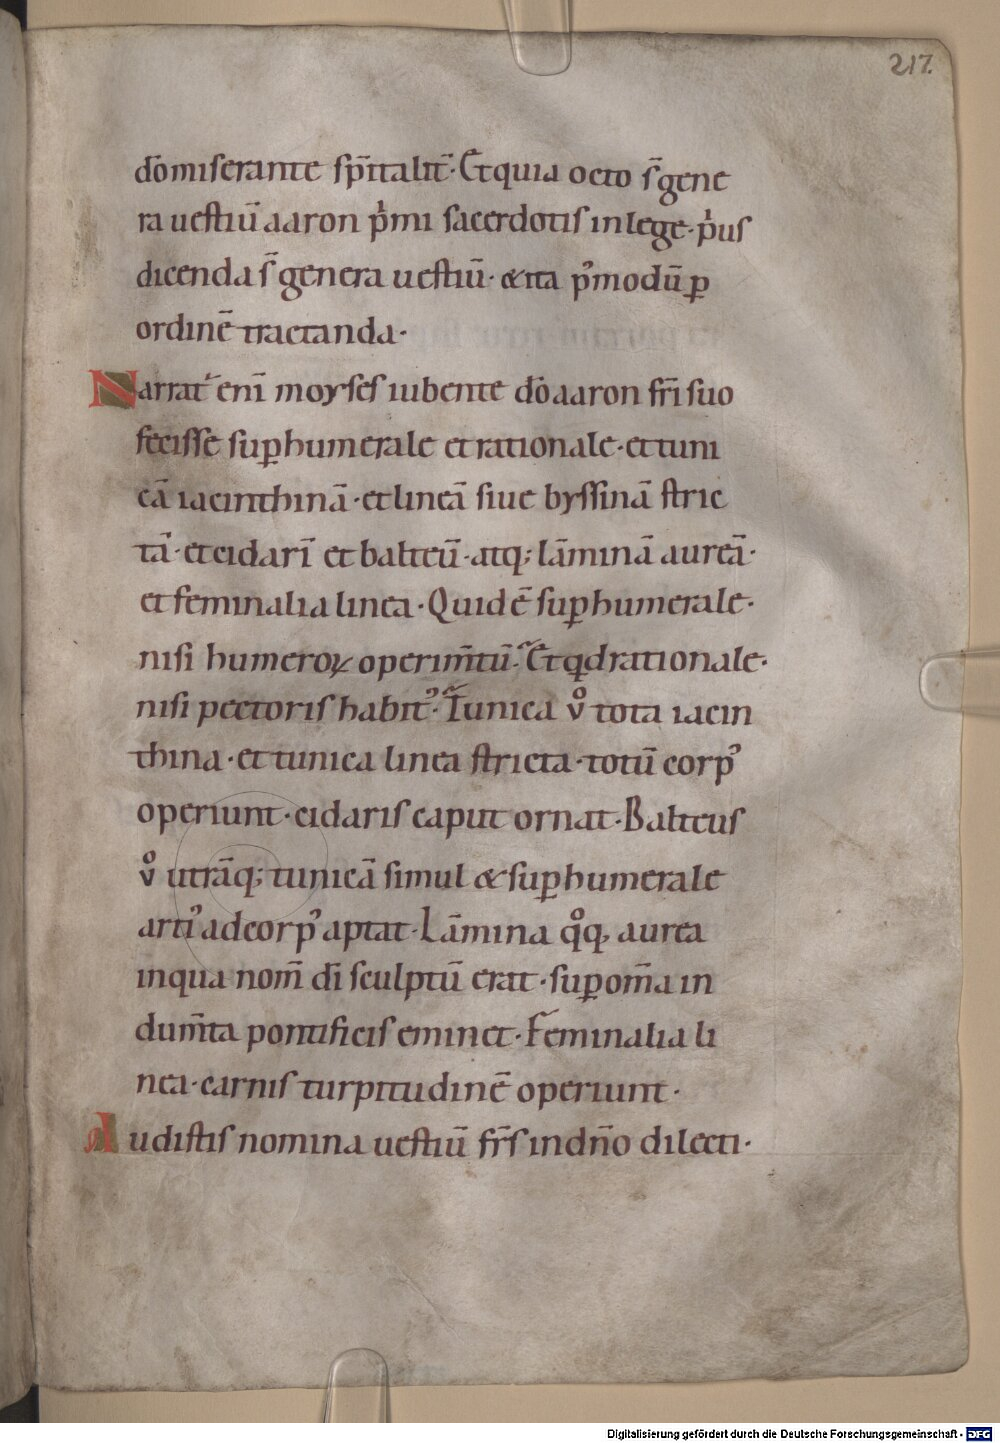 217.
dō miserante sp̄italit̄· Et quia octo s̄ gene
ra uestiū aaron p̍mi sacerdotis in lege· p̍us
dicenda s̄ genera uestiū· & ita p᾿modū ꝑ
ordinē tractanda·
Narrat᾿ enī moyses iubente dō aaron fr̄i suo
fecisse suꝑhumerale et rationale· et tuni
cā iacinthinā· et lineā siue byssinā stric
tā· et cidarī et balteū· atq; lāminā aureā·
et feminalia linea· Quid ē suꝑhumerale·
nisi humeroꝝ operim̄tū· Et qd rationale·
nisi pectoris habit᾿· Tunica v̊ tota iacin
thina· et tunica linea stricta· totū corp᾿
operiunt· cidaris caput ornat· Balteus
v̊ utrāq; tunicā simul & suꝑhumerale
arti᾿ ad corp᾿ aptat· Lāmina q̊q, aurea
in qua nom̄ dī sculptū erat· suꝑ om̄a in
dum̄ta pontificis eminet· Feminalia li
nea· carnis turpitudinē operiunt·
Audistis nomina uestiū fr̄s in dn̄o dilecti·
Digitalisierung gefördert durch die Deutsche Forschungsgemeinschaft - DFG